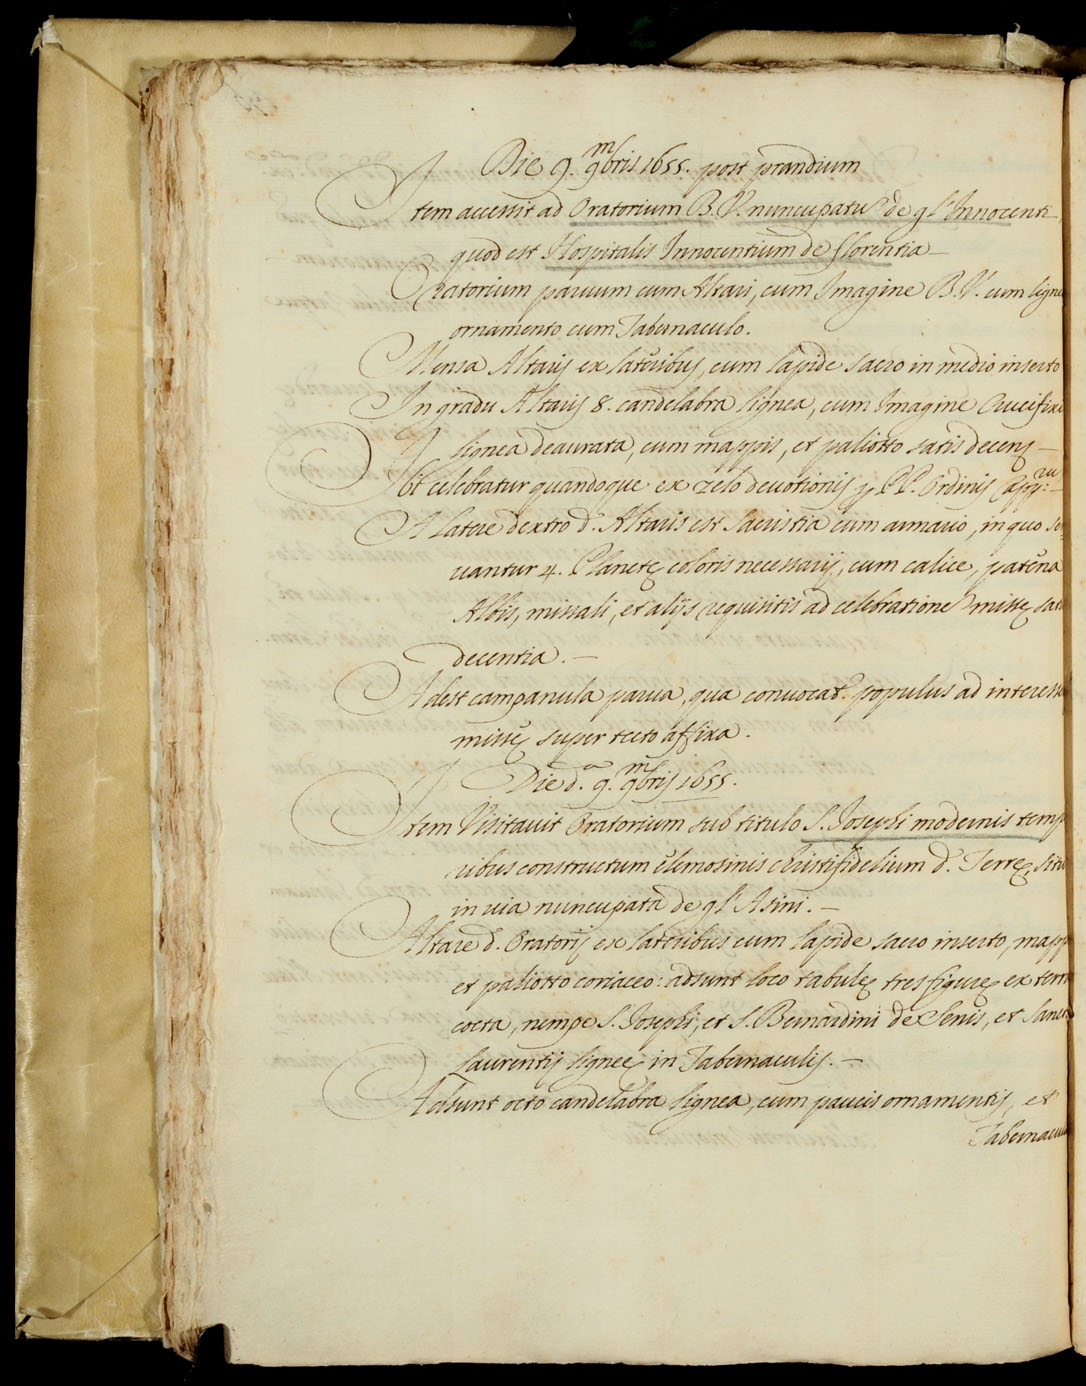 Die 9. 9mbris 1655. post prandium
Item accessit ad Oratorium B. V. nuncupatũ de gl' Innocenti
quod est Hospitalis Innocentium de Florentia
Oratorium paruum cum Altari, cum Imagine B. V. cum ligneo
ornamento cum Tabernaculo.
Mensa Altaris ex lateribus, cum lapide sacro in medio inserto
In gradu Altaris 8. candelabra lignea, cum Imagine Crucifixi
lignea deaurata, cum mappis, et paliotto satis decens
Ibi celebratur quandoque ex zelo deuotionis p PP. Ordinis
A latere dextro d. Altaris est Sacristia cum armario, in quo
uantur 4. Planetę coloris necessarij, cum calice, patena
Albis, missali, et alijs requisitis ad celebrationẽ missę
decentia. —
Adest campanula parua, qua conuocat. populus ad
missę super tecto affixa.
Die d.a 9. 9mbris 1655.
Item Visitauit Oratorium sub titulo S. Josephi modernis temp
ribus constructum elemosinis christifidelium d. Terrę,
in uia nuncupata de gl' Asini. —
Altare d. Oratorij ex lateribus cum lapide sacro inserto,
et paliotto coriaceo: adsunt loco tabulę tres figurę ex
cocta, nempe S. Josephi, et S. Bernardini de Senis, et
Laurentij ligneę in Tabernaculis. —
Adsunt octo candelabra lignea, cum paucis ornamentis, et